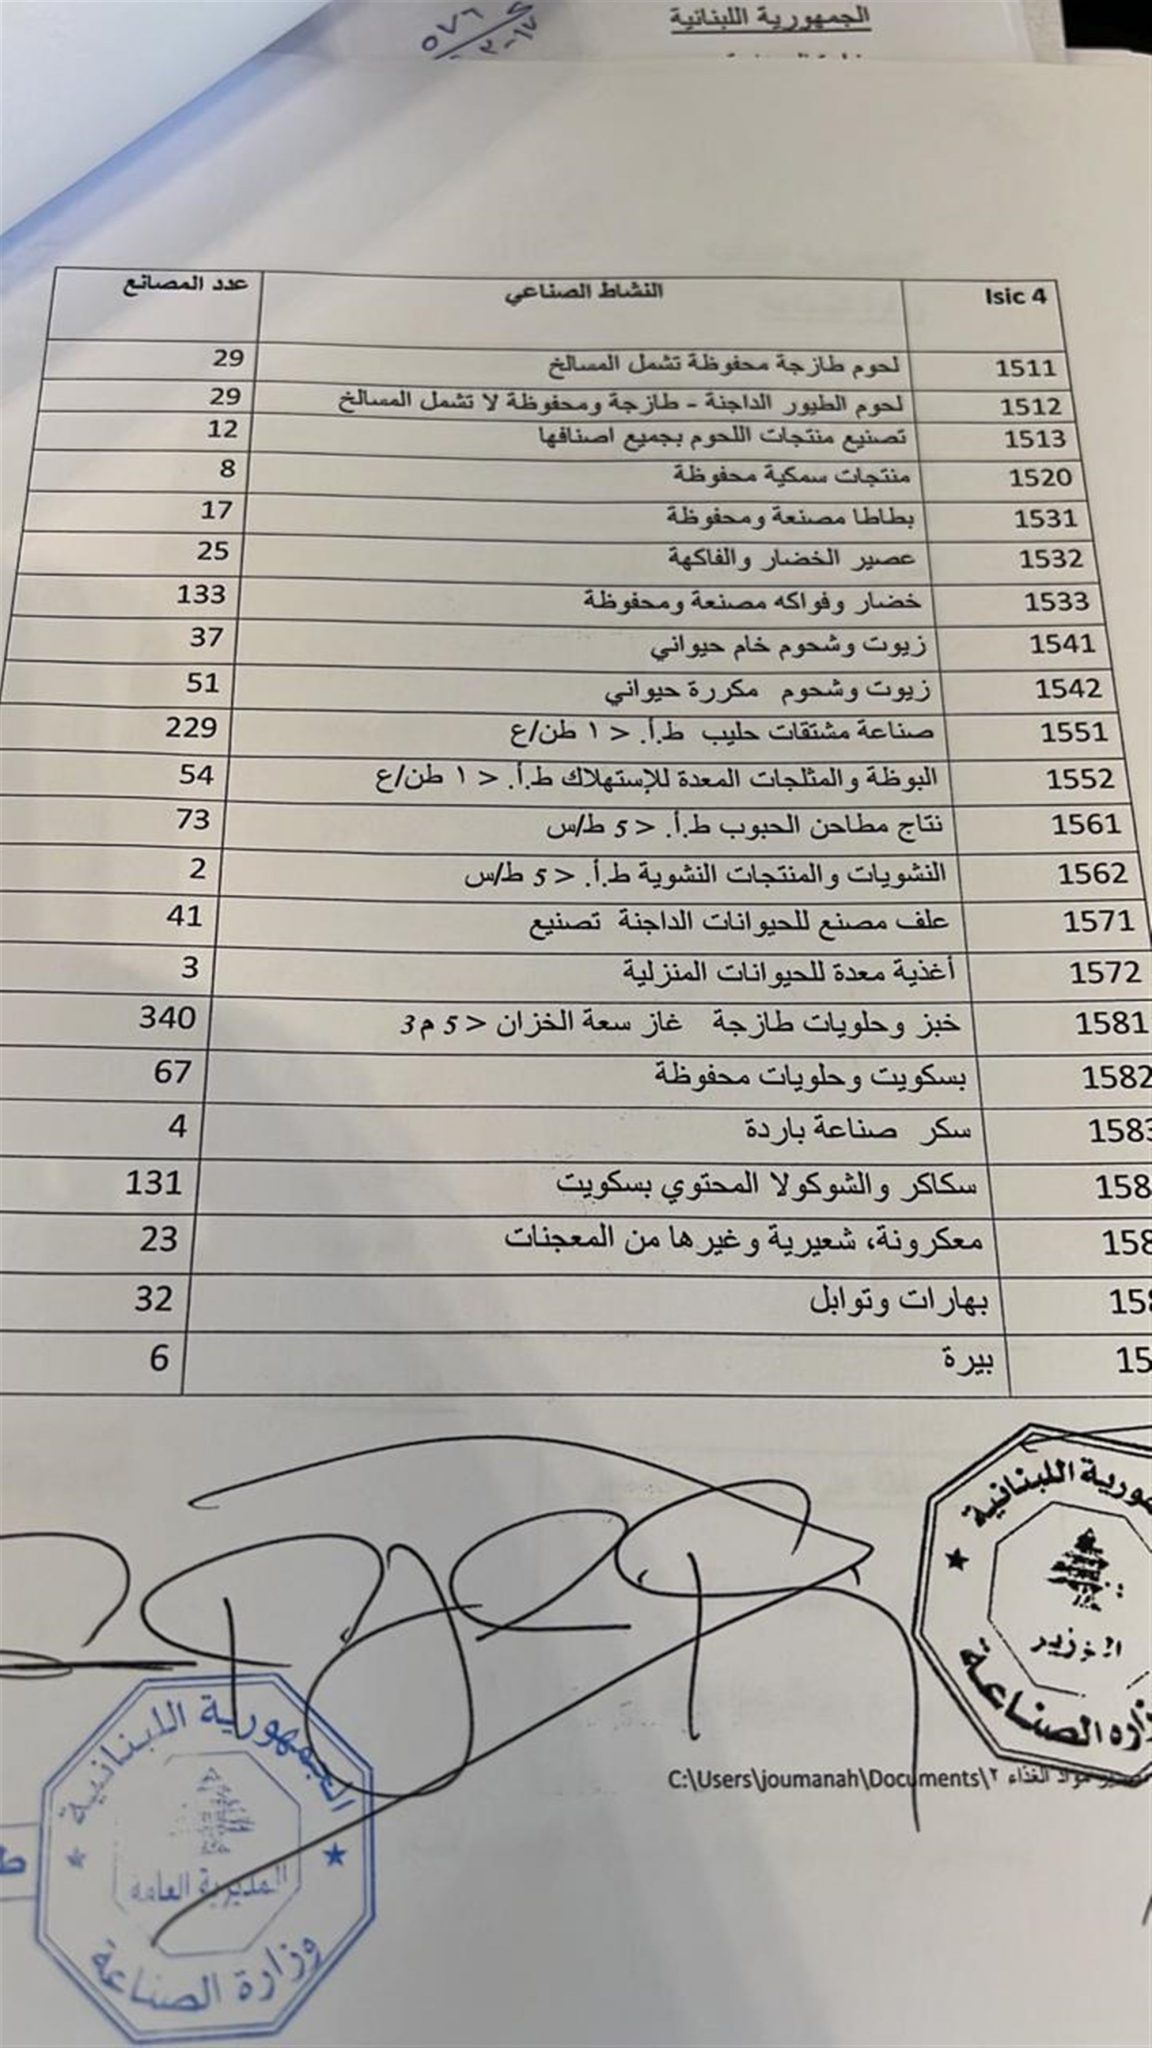 الجمهورية اللبنانية
٥٧٦
Isic 4 النشاط الصناعي عدد المصانع
1511 لحوم طازجة محفوظة تشمل المسالخ 29
1512 لحوم الطيور الداجنة - طازجة ومحفوظة لا تشمل المسالخ 29
1513 تصنيع منتجات اللحوم بجميع اصنافها 12
1520 منتجات سمكية محفوظة 8
1531 بطاطا مصنعة ومحفوظة 17
1532 عصير الخضار والفاكهة 25
1533 خضار وفواكه مصنعة ومحفوظة 133
1541 زيوت وشحوم خام حيواني 37
1542 زيوت وشحوم مكررة حيواني 51
1551 صناعة مشتقات حليب ط.أ. < ١ طن/ع 229
1552 البوظة والمثلجات المعدة للإستهلاك ط.أ. < ١ طن/ع 54
1561 نتاج مطاحن الحبوب ط.أ. < 5 ط/س 73
1562 النشويات والمنتجات النشوية ط.أ. < 5 ط/س 2
1571 علف مصنع للحيوانات الداجنة تصنيع 41
1572 أغذية معدة للحيوانات المنزلية 3
1581 خبز وحلويات طازجة غاز سعة الخزان < 5 م3 340
1582 بسكويت وحلويات محفوظة 67
1583 سكر صناعة باردة 4
158 سكاكر والشوكولا المحتوي بسكويت 131
158 معكرونة، شعيرية وغيرها من المعجنات 23
158 بهارات وتوابل 32
15 بيرة 6
الجمهورية اللبنانية
الوزير
وزارة الصناعة
C:\Users\joumanah\Documents\٢ مواد الغذاء
الجمهورية اللبنانية
المديرية العامة
وزارة الصناعة